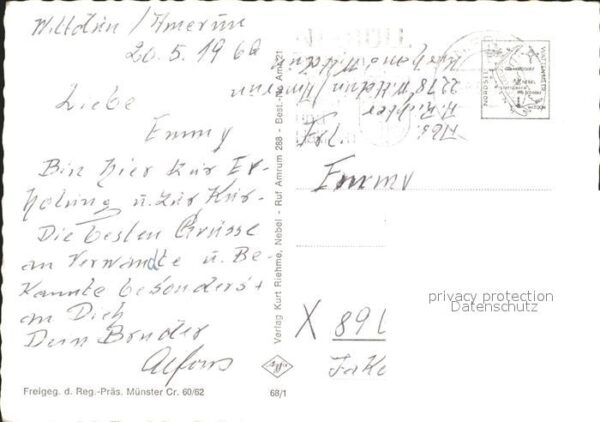 Wittdün / Amrum
20.5.1968
Liebe
Emmy
Bin hier zur Er-
holung u. zur Kur.
Die besten Grüsse
an Verwandte u. Be-
kannte besonders
an Dich
Dein Bruder
Alfons
Freigeg. d. Reg.-Präs. Münster Cr. 60/62
68/1
Verlag Kurt Riehme, Nebel - Ruf Amrum 288 - Best.-Nr. Am 21
Agfa
Abs.
2278 Wittdün / Amrum
NORDSEE
WATTENMEER
Emmy
X 891
privacy protection
Datenschutz